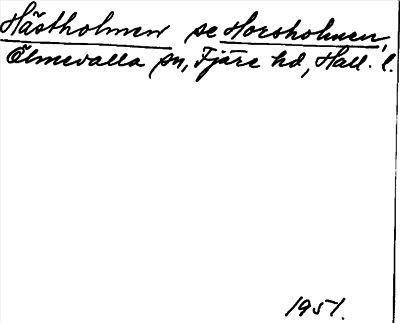 Hästholmen se Horsholmen,
Ölmevalla sn, Fjäre hd, Hall. l.
1951.